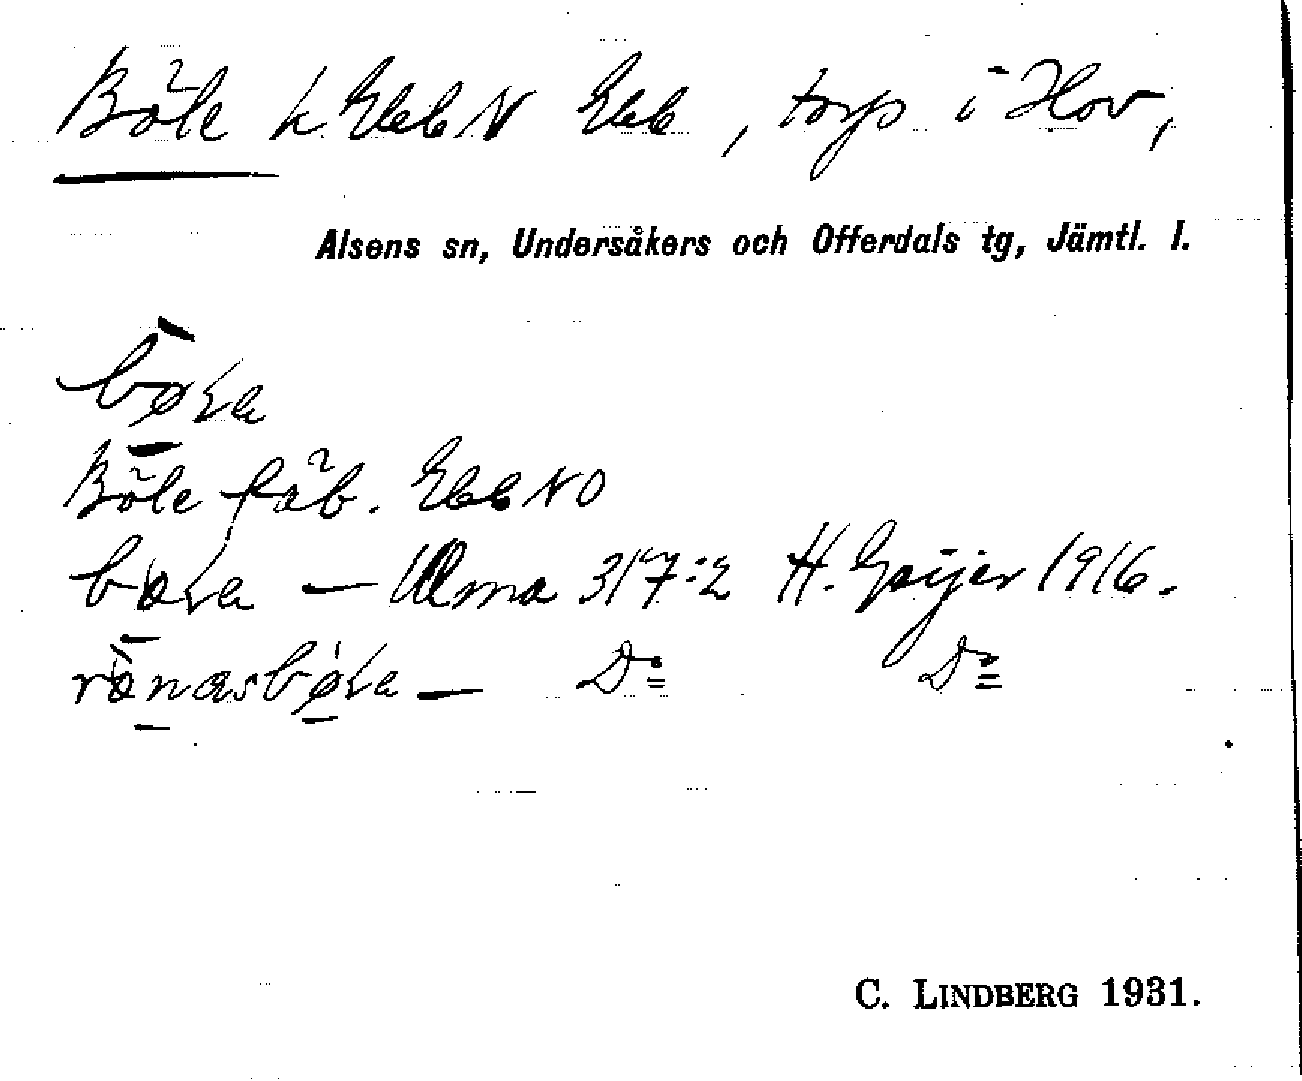 Böle h. Ekb N Ekb, torp i Hov,
Alsens sn, Undersåkers och Offerdals tg, Jämtl. l.
bøla
Böle fäb. Ekb NO
bøla — Ulma 317:2 H. Geijer 1916.
rònasbøla — D:o D:o
C. LINDBERG 1931.